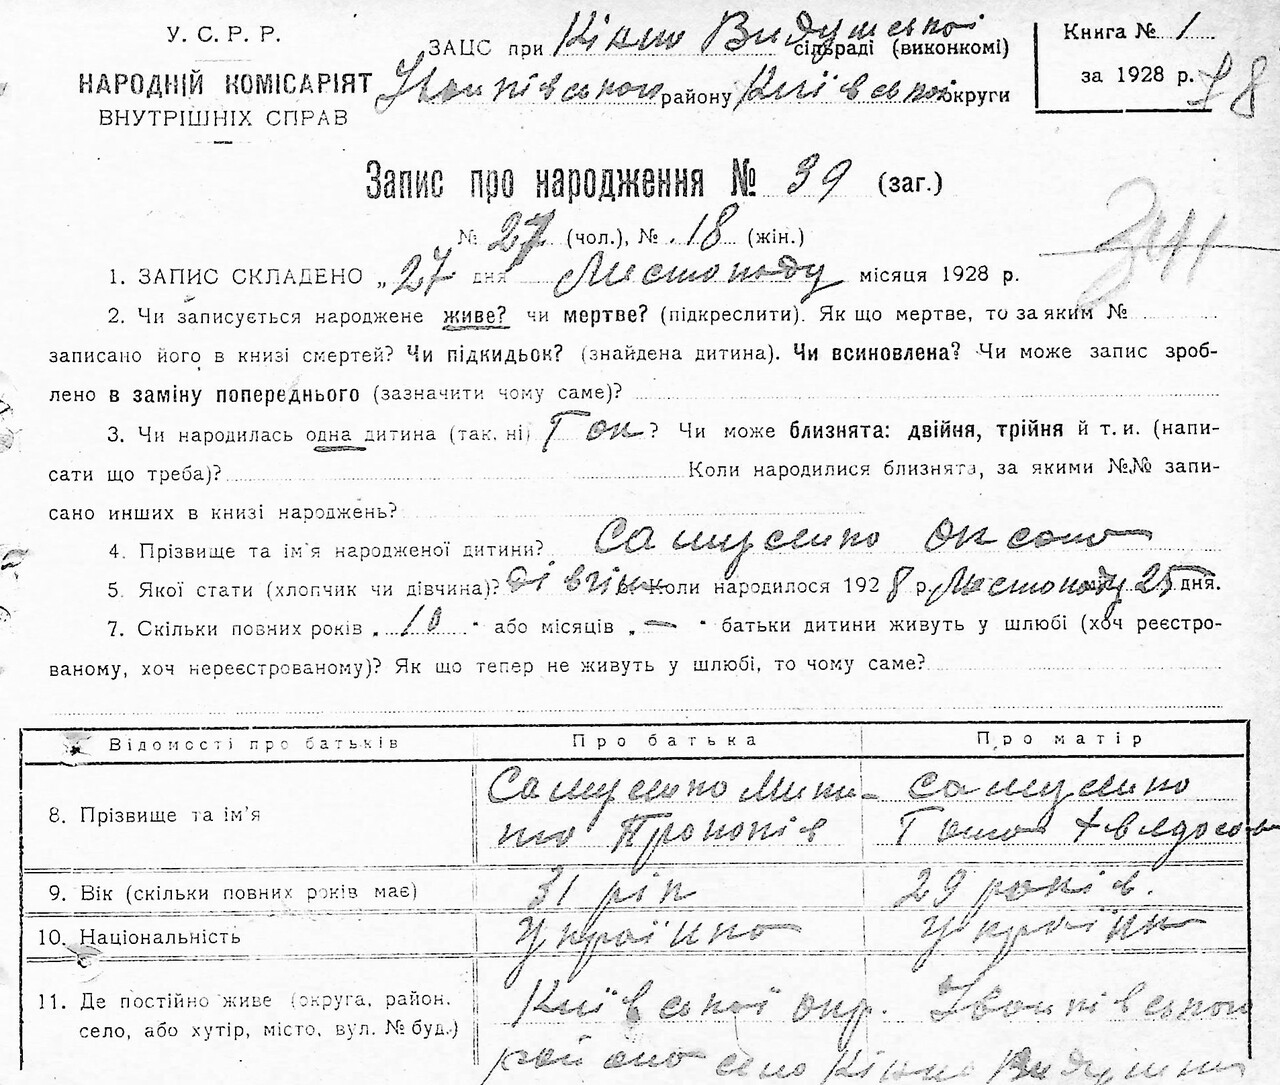 У. С. Р. Р.
НАРОДНІЙ КОМІСАРІЯТ
ВНУТРІШНІХ СПРАВ
ЗАЦС при Кінно Видумської сільраді (виконкомі)
району Київської округи
Книга № 1
за 1928 р.
Запис про народження № 39 (заг.)
№ 27 (чол.), № 18 (жін.)
1. ЗАПИС СКЛАДЕНО „27 дня Листопаду місяця 1928 р.
2. Чи записується народжене живе? чи мертве? (підкреслити). Як що мертве, то за яким №
записано його в книзі смертей? Чи підкидьок? (знайдена дитина). Чи всиновлена? Чи може запис зроб-
лено в заміну попереднього (зазначити чому саме)?
3. Чи народилась одна дитина (так, ні) Так? Чи може близнята: двійня, трійня й т. и. (напи-
сати що треба)? Коли народилися близнята, за якими №№ запи-
сано инших в книзі народжень?
4. Прізвище та ім'я народженої дитини?
5. Якої стати (хлопчик чи дівчина)? Коли народилося 1928 р. Листопаду 25 дня.
7. Скільки повних років „10" або місяців „—" батьки дитини живуть у шлюбі (хоч реєстро-
ваному, хоч нереєстрованому)? Як що тепер не живуть у шлюбі, то чому саме?
Відомості про батьків Про батька Про матір
8. Прізвище та ім'я
Прокопів
9. Вік (скільки повних років має) 31 рік 29 років.
10. Національність Українка
11. Де постійно живе (округа, район, Київської окр.
село, або хутір, місто, вул. № буд.) району село Кінно